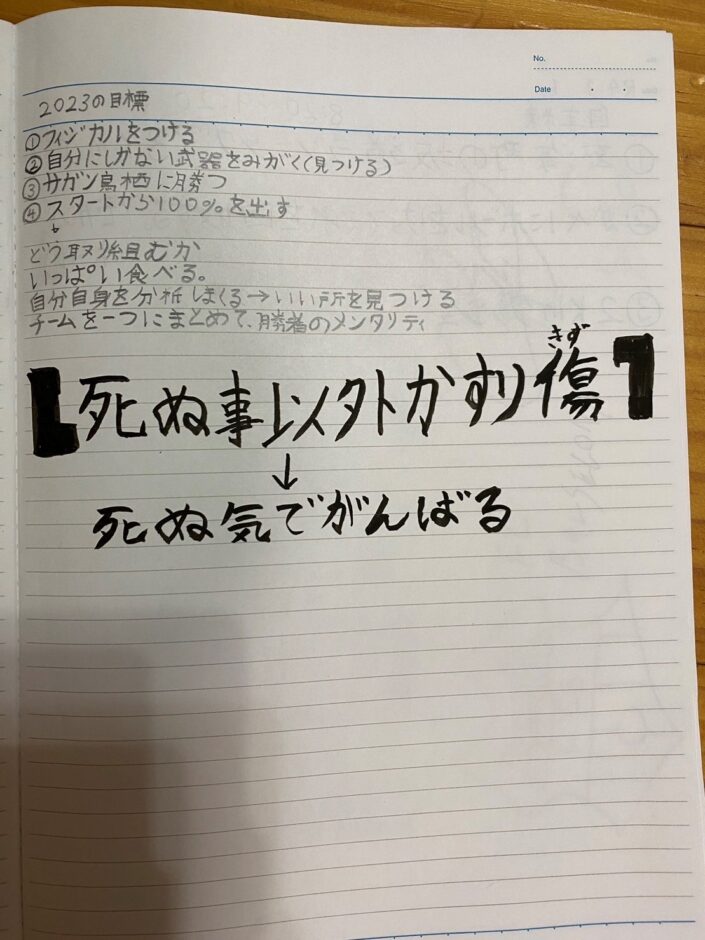 No.
Date
2023の目標
①フィジカルをつける
②自分にしかない武器をみがく(見つける)
③サガン鳥栖に勝つ
④スタートから100%を出す
↓
どう取り組むか
いっぱい食べる。
自分自身を分析しまくる→いい所を見つける
チームを一つにまとめて、勝者のメンタリティ
きず
【死ぬ事以外かすり傷】
↓
死ぬ気でがんばる